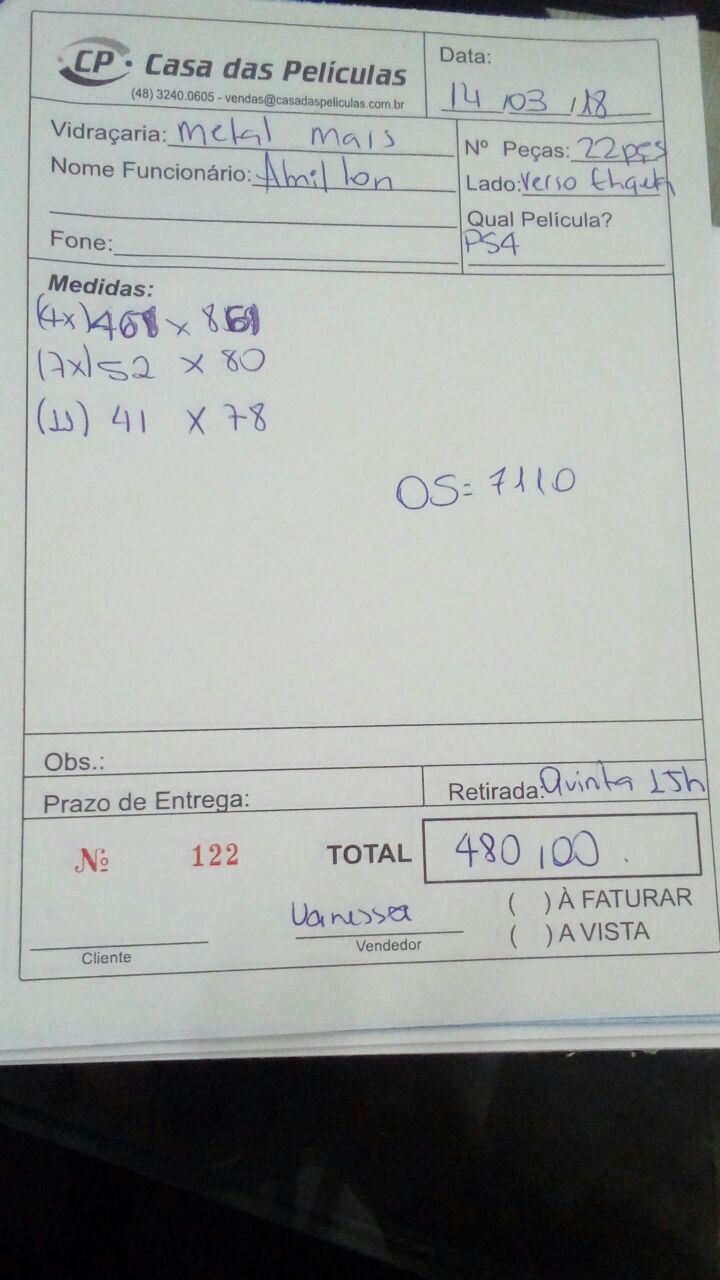 CP Casa das Películas
(48) 3240.0605 - vendas@casadaspeliculas.com.br
Data:
14 / 03 / 18
Vidraçaria: Metal Mais
Nome Funcionário: Amilton
Fone:
Nº Peças: 22pçs
Lado: Verso Etiqueta
Qual Película?
PS4
Medidas:
(4x)
(7x) 52 x 80
(11) 41 x 78
OS= 7110
Obs.:
Prazo de Entrega:
Retirada: Quinta 15h
Nº 122
TOTAL 480,00.
Vanessa
Cliente
Vendedor
( ) À FATURAR
( ) A VISTA